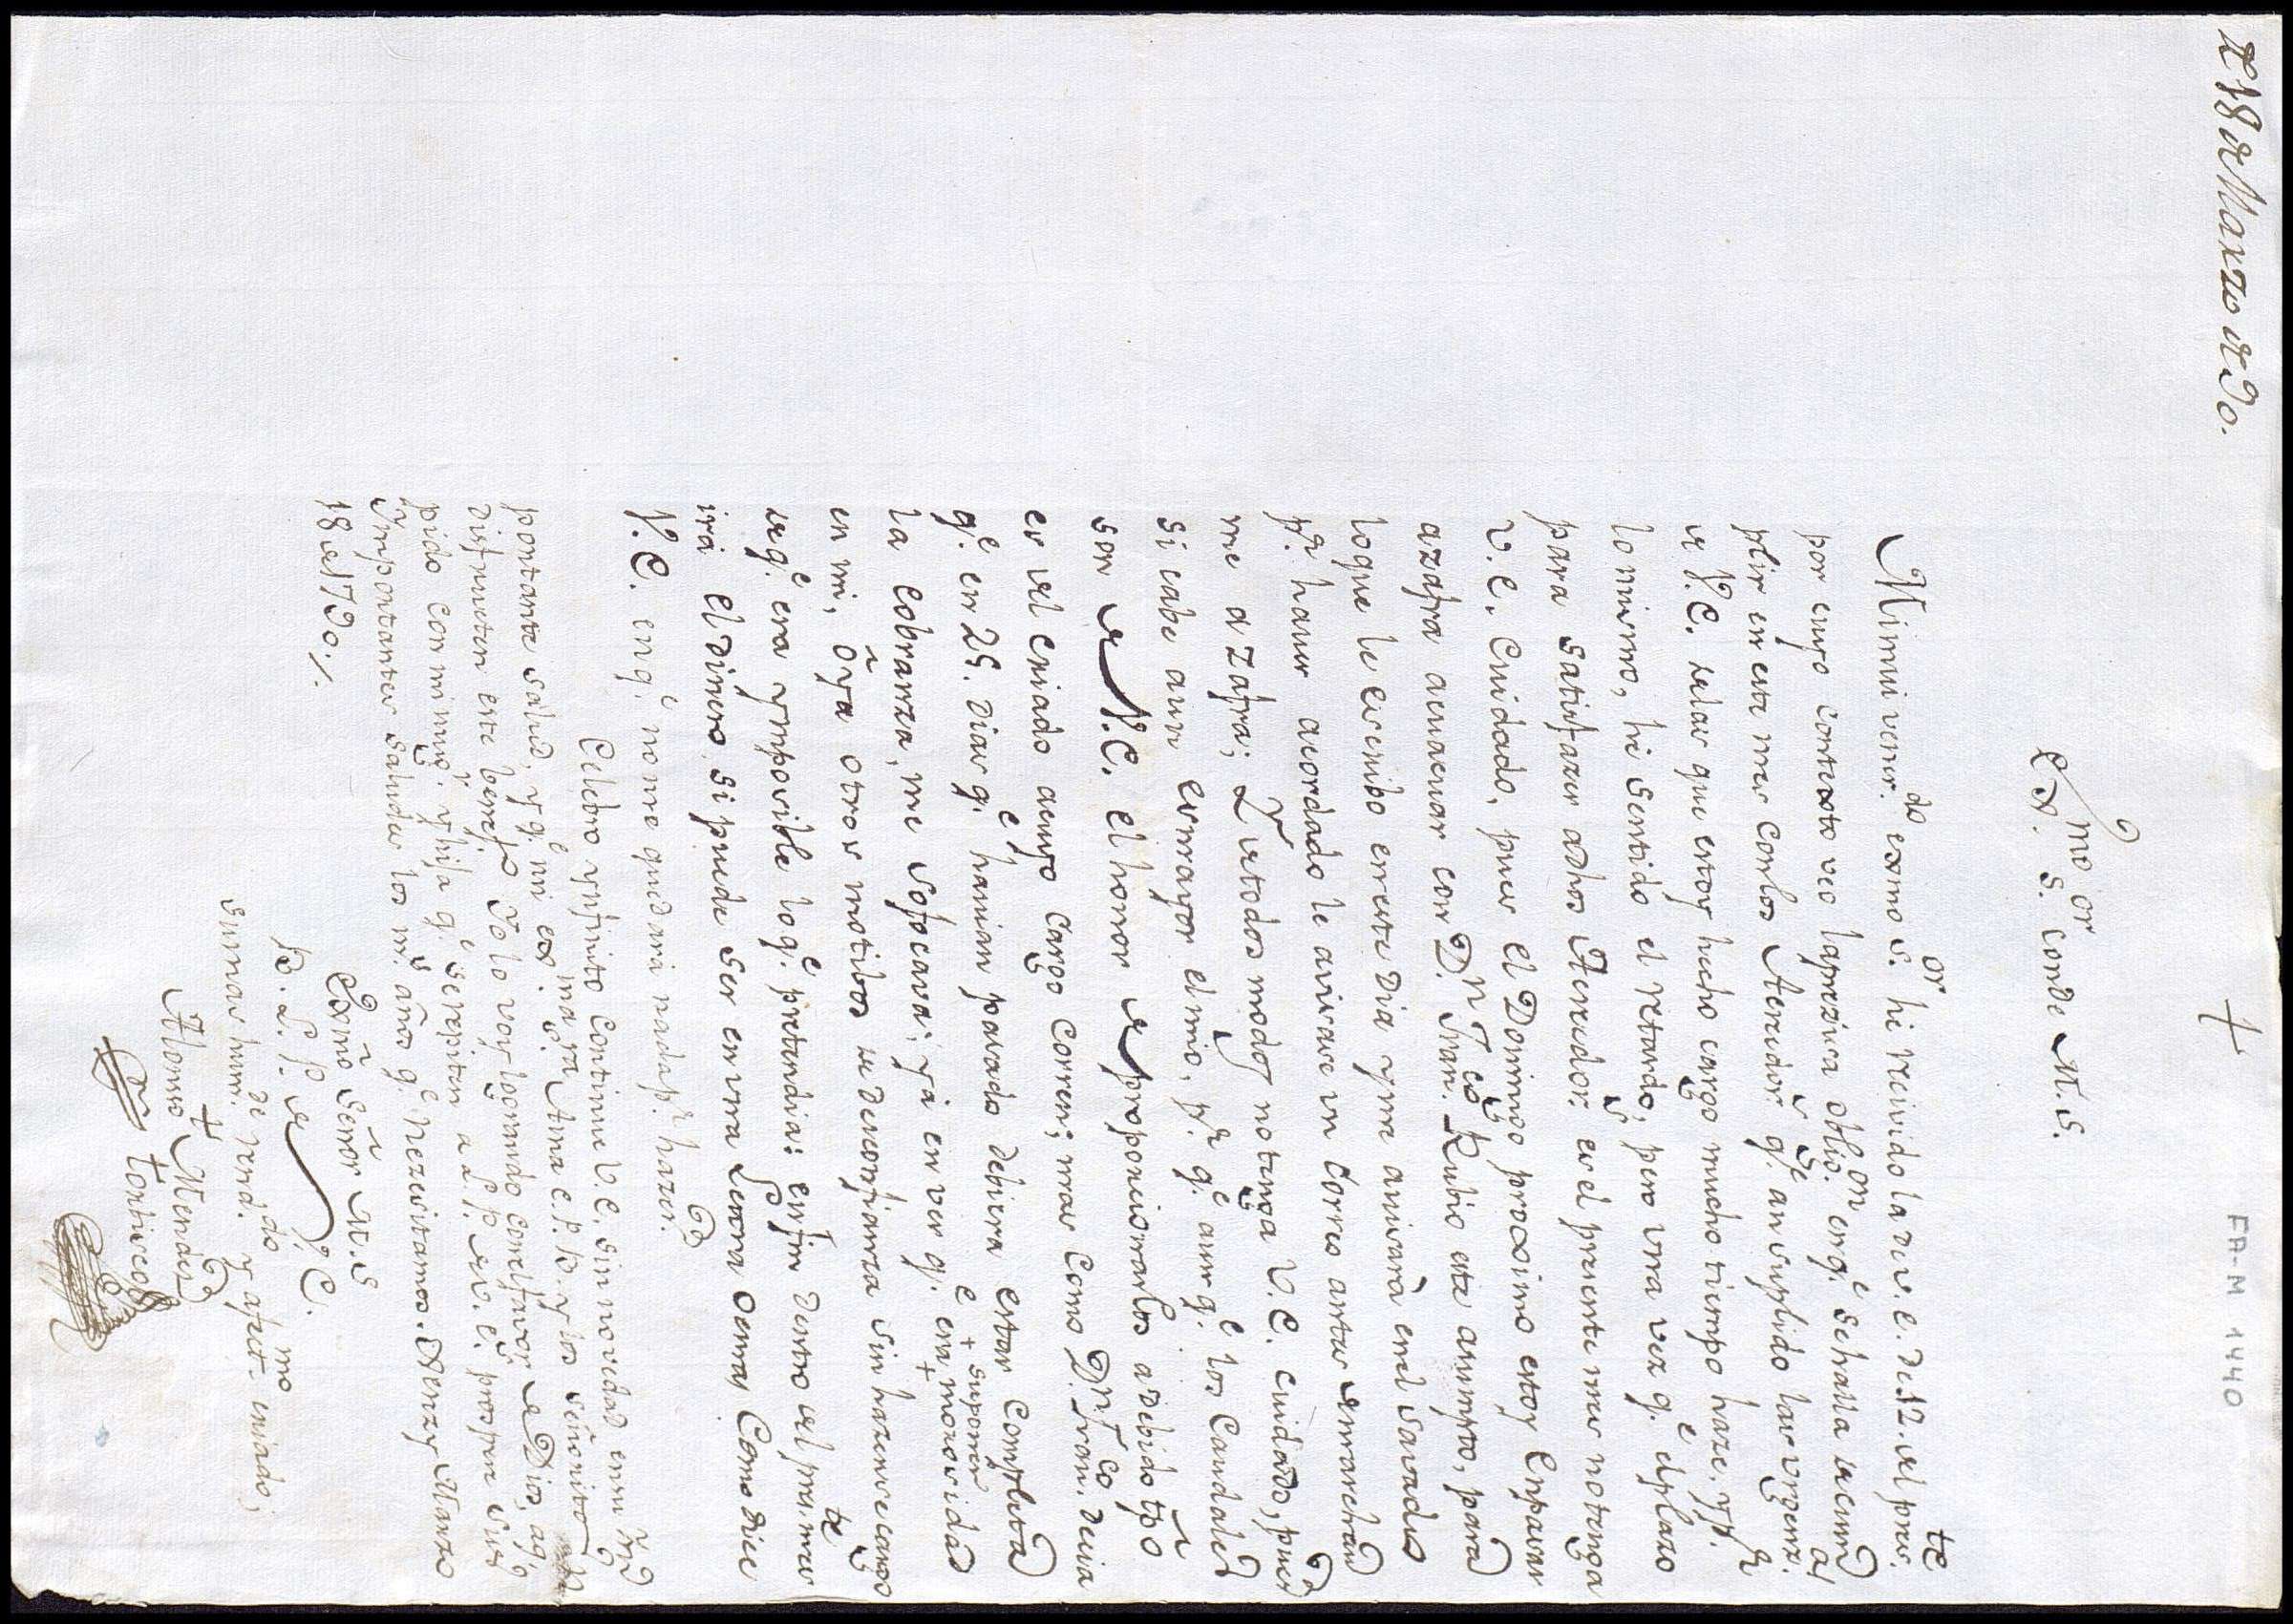 18 de Marzo de 90.
+
FA-M 1440
Exmo. S.or Conde M. S.
Mi mui vener.do exmo S.or he recivido la de v. e. de 12. del pres.te
por cuyo contexto veo la precisa oblig.on en q.e se halla de cum
plir en este mes con los Acredor.s q.e an suplido las urgenz.as
de V.E. de las que estoy hecho cargo mucho tiempo haze. y p.r
lo mismo, he sentido el retardo; pero una vez q.e el plazo
para satisfazer a dhos Acredor.s es el presente mes no tenga
V. E. Cuidado, pues el Domingo proximo estoy en pasar
a zafra a evaquar con D.n Fran.co Rubio este asumpto, para
lo que le escribo en este Dia y me avisarà en el savado
p.r haver acordado le avisase un correo antes de marchar
me a Zafra; De todos modos no tenga V. E. cuidado, pues
si cabe aun es mayor el mio, p.r q.e aunq.e los Caudales
son de V.E. el honor de proporcionarlos a devido tpõ
es del criado a cuyo cargo corren; mas como D.n Fran.co decia
q.e en 25. dias q.e havian pasado debiera estar completa
la cobranza, me sofocava; ya en ver q.e en + suponer + morosidad
en mi, ô ya otros motibos de desconfianza sin hazerse cargo
deq.e era ymposible lo q.e pretendia: en fin dentro del pres.te mes
irá el dinero si puede ser en una Letra o en Como dice
V. E. en q.e no me quedará nada p.r hazer.
Celebro ynfinito continue V. E. sin novedad en su ym
portante salud, y q.e mi ex.ma S.ra Ama e. l. p. y los señoritos
disfruten este benef.o Yo lo voy logrando con el favor de Dios, aq.n
pido con mi mug.r y hija q.e se repiten a L. P. de V. E. prospere sus
Ymportantes saludes los m.s años q.e nezesitamos. Xerez y Marzo
18 de 1790.
Exmõ Señor M. S.
B. L. P. de V. E.
su mas hum.de rend.do y afect.mo criado;
Alonso Mendez
Torticos